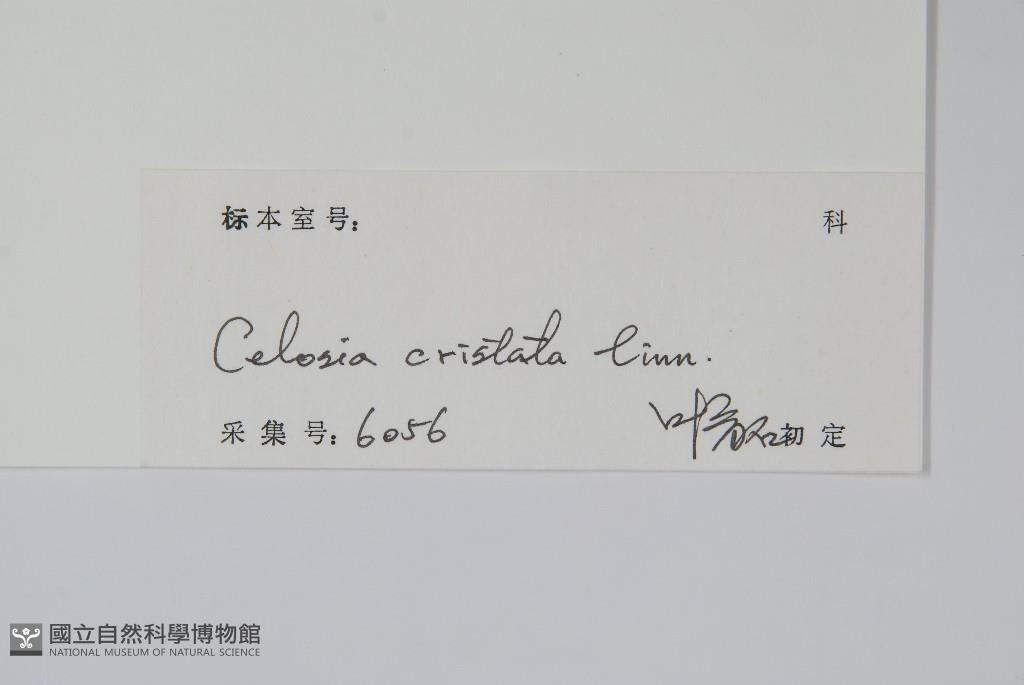 标本室号： 科
Celosia cristata Linn.
采集号：6056 初定
國立自然科學博物館
NATIONAL MUSEUM OF NATURAL SCIENCE